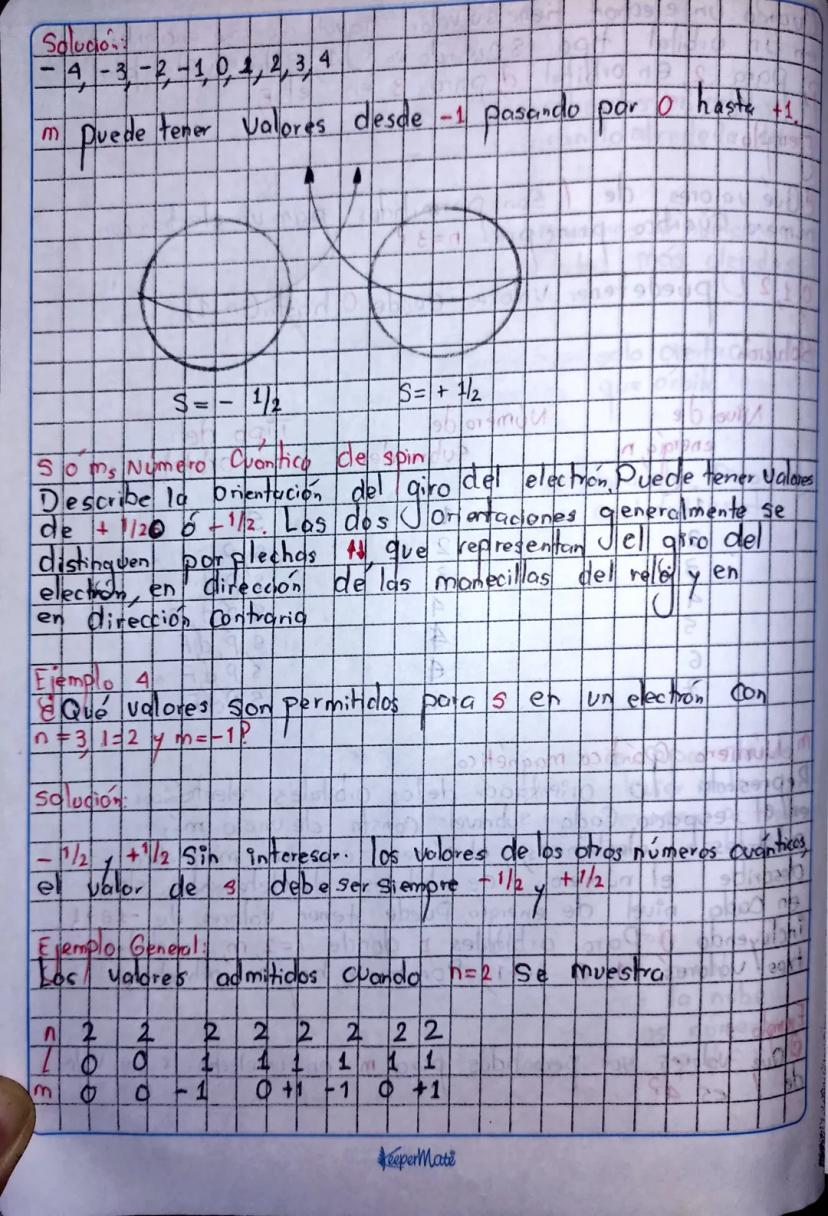 Solución:
- 4, -3, -2, -1, 0, 1, 2, 3, 4
m puede tener valores desde -1 pasando por 0 hasta +1.
S = - 1/2
S = + 1/2
S ó ms Número Cuántico de spin
Describe la orientación del giro del electrón. Puede tener valores
de + 1/2 ó - 1/2. Las dos orientaciones generalmente se
distinguen por plechas ↑↓, que representan el giro del
electrón, en dirección de las manecillas del reloj y en
en dirección contraria
Ejemplo 4
¿Qué valores son permitidos para s en un electrón con
n = 3, l = 2 y m = -1?
Solución:
- 1/2 y + 1/2 Sin interesar. los valores de los otros números cuánticos,
el valor de s debe ser siempre - 1/2 y + 1/2
Ejemplo General:
Los valores admitidos cuando n=2 se muestra
n 2 2 2 2 2 2 2 2
l 0 0 1 1 1 1 1 1
m 0 0 -1 0 +1 -1 0 +1
KeeperMate